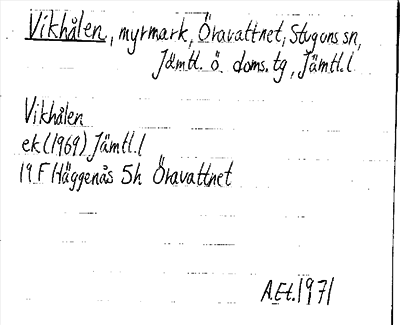 Vikhålen, myrmark, Öravattnet, Stuguns sn,
Jämtl. ö. doms.tg, Jämtl.l
Vikhålen
ek(1969) Jämtl.l
19 F Häggenås 5h Öravattnet
A.Et.1971